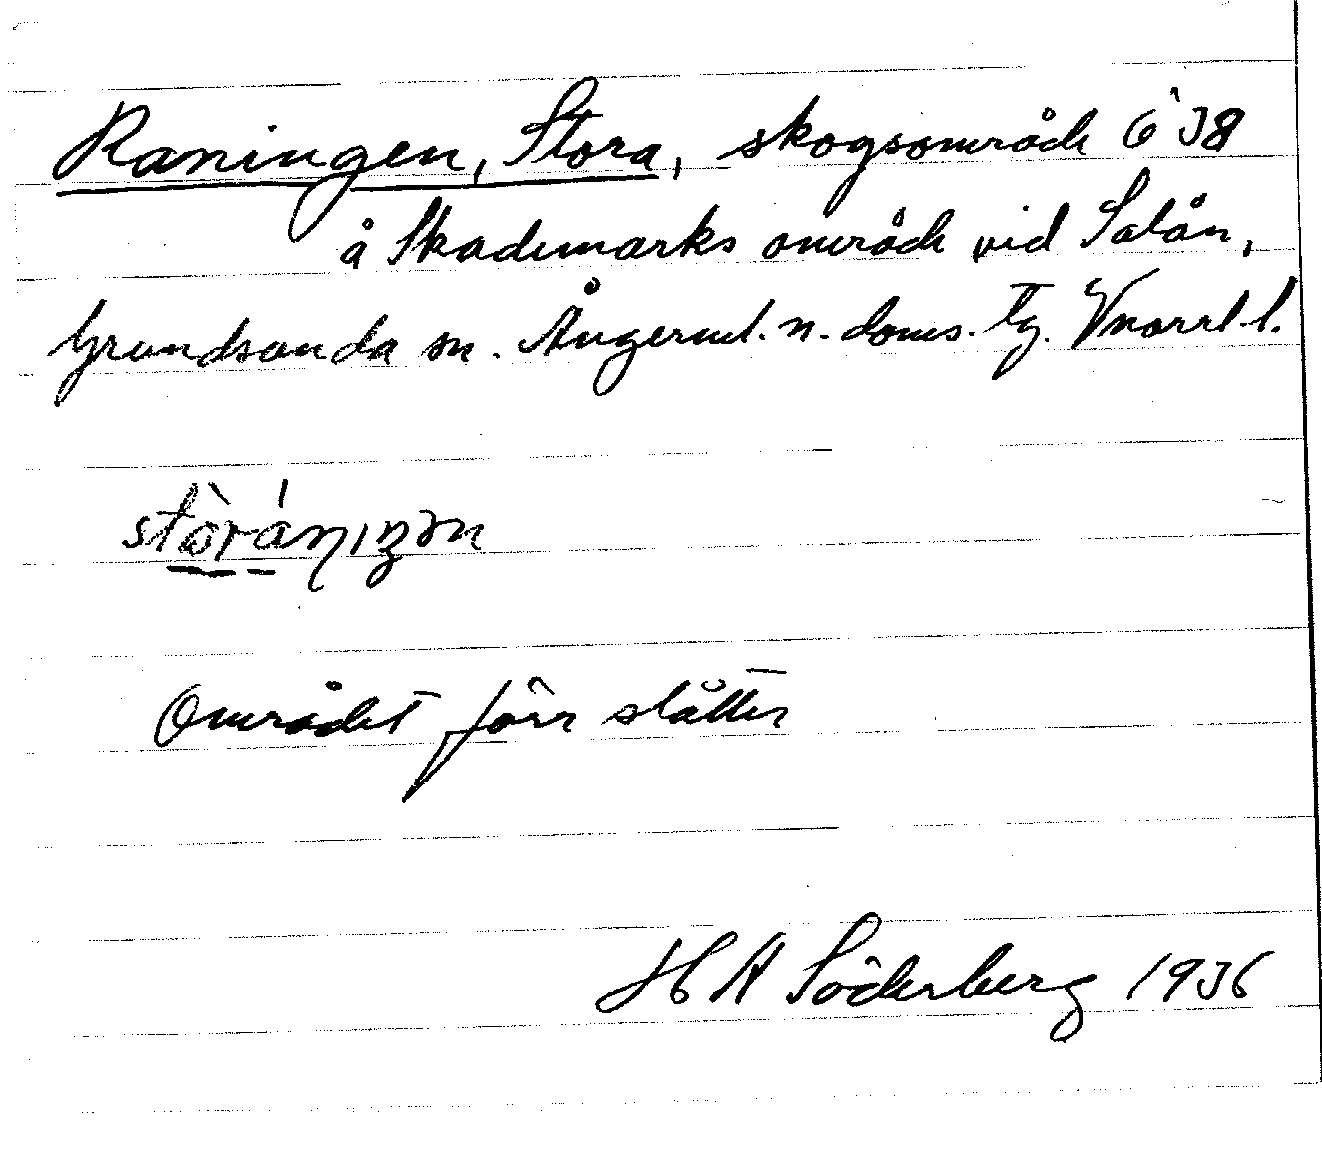 Raningen, Stora, skogsområde 6`38
å Skademarks område vid Salån,
Grundsunda sn. Ångerml. n. doms. tg. Vnorrl. l.

Området förr slåtter
H A Söderberg 1936